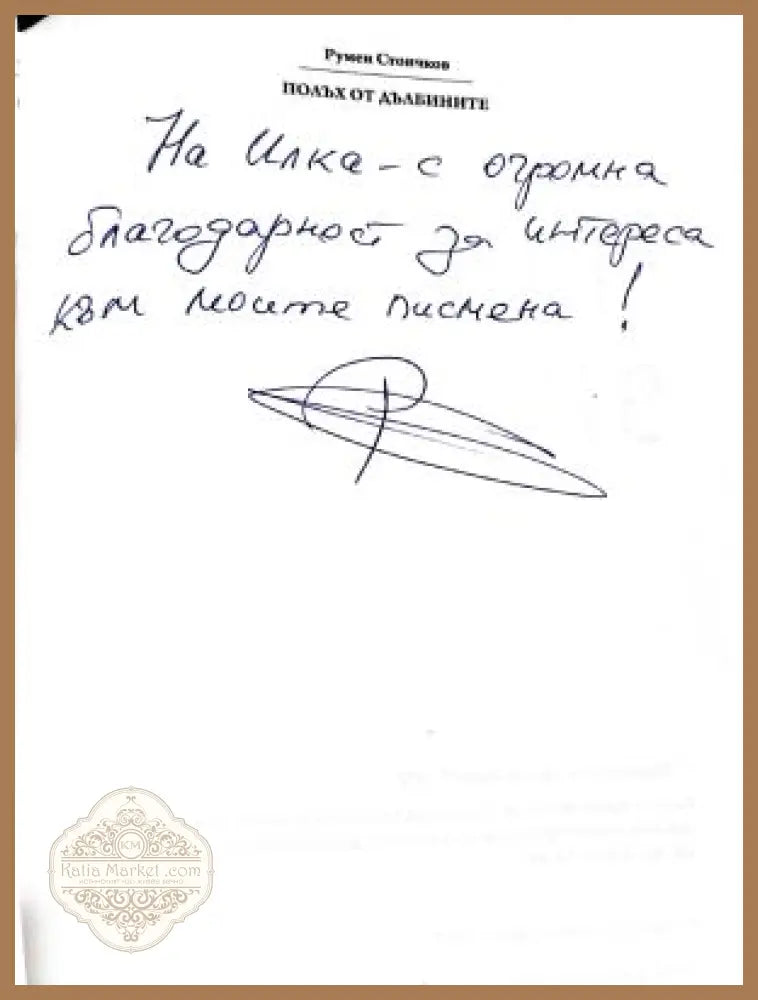 Румен Стоичков
ПОЛЪХ ОТ ДЪЛБИНИТЕ
На Илка – с огромна
благодарност за интереса
към моите писмена!
KM
Katia Market .com